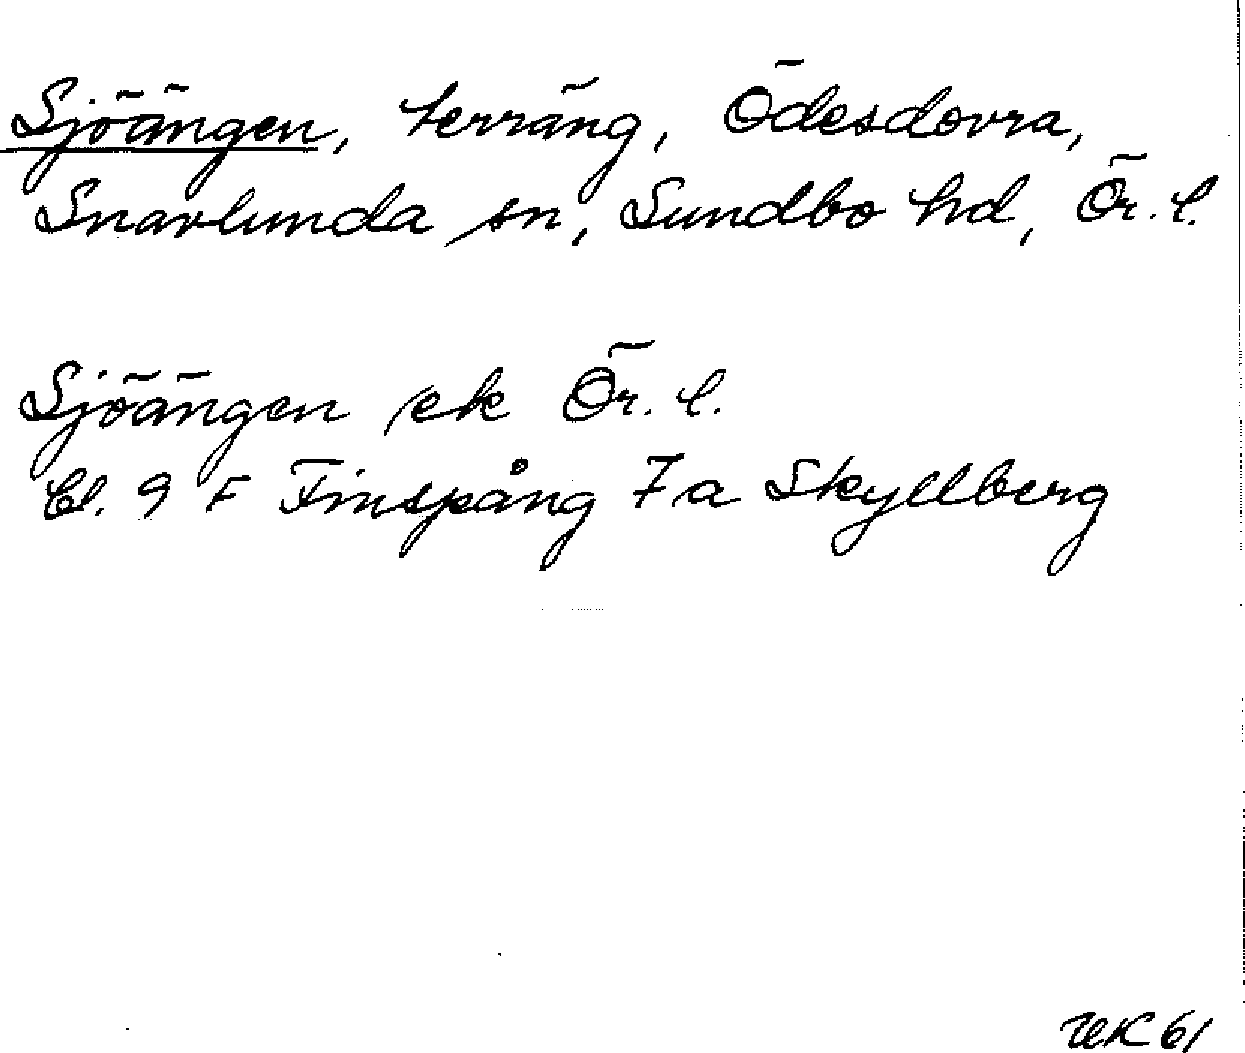 Sjöängen, terräng, Ödesdovra,
Snavlunda sn, Sundbo hd, Ör. l.
Sjöängen ek Ör. l.
Bl. 9 F Finspång 7 a Skyllberg
UK 61